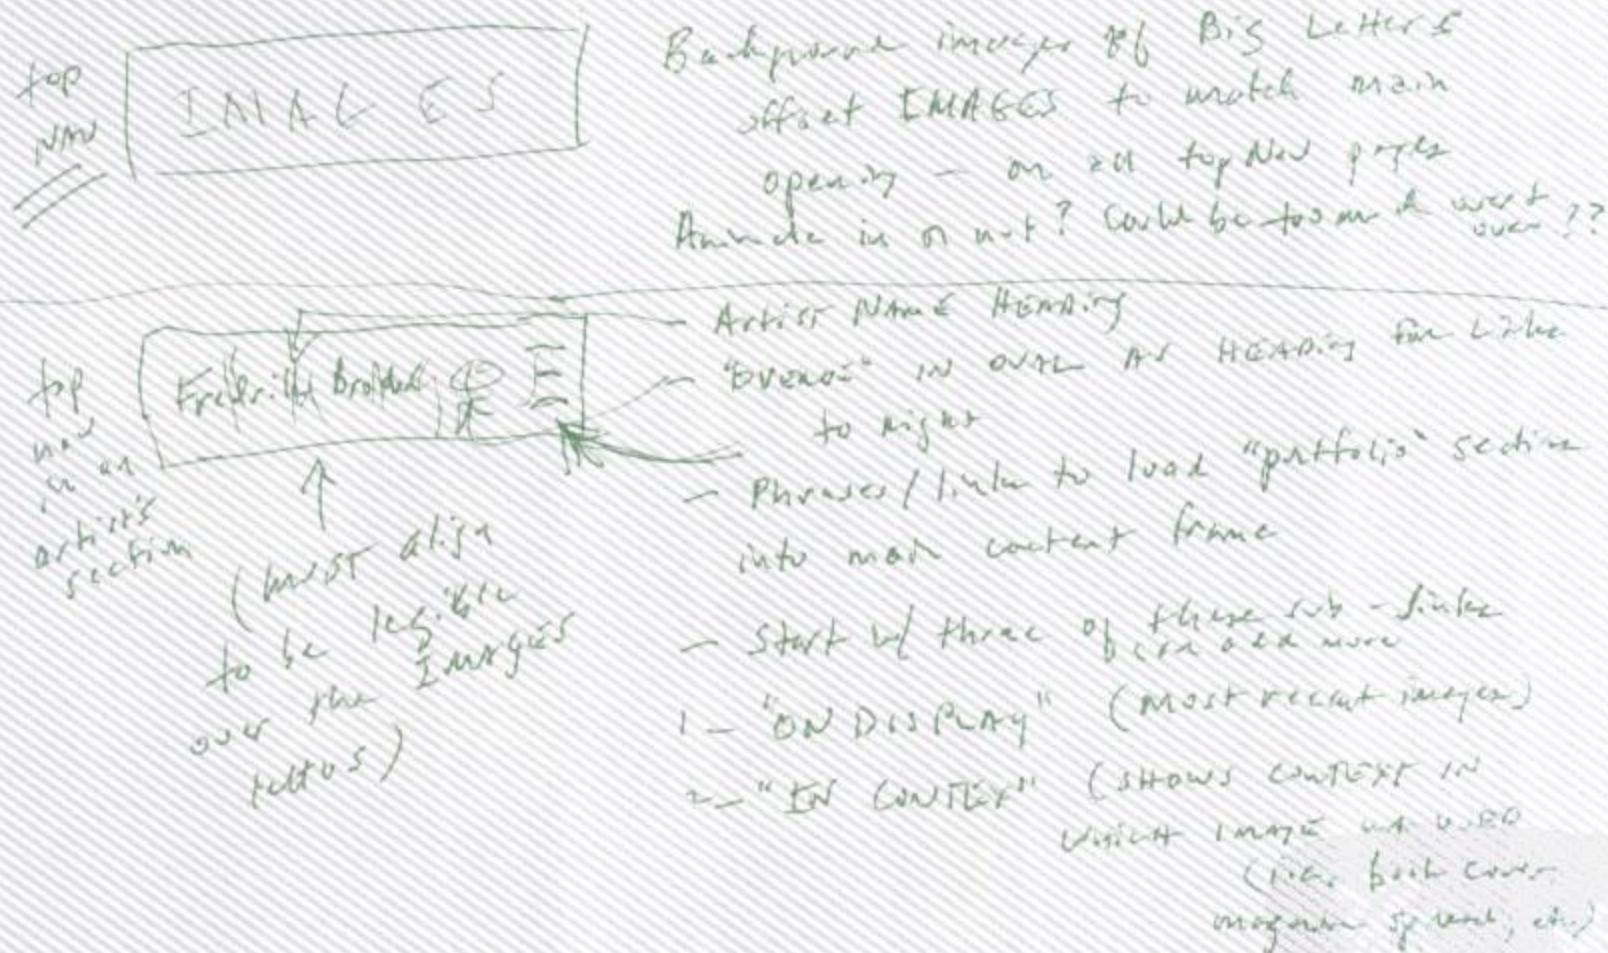 top
NAV
IMAGES
Background images of Big Letters
offset IMAGES to match main
opening — on all top Nav pages
Animate in or not? Could be too much over ??
top
nav
in an
artist's
section
Frederik Broden
(must align
to be legible
over the IMAGES
— Artist NAME HEADing
— IN OVAL AS HEADing for Links
to right
— Phrases / links to load "portfolio" section
into main content frame
— Start w/ three of these sub-links
can add more
1 — "ON DISPLAY" (most recent images)
2 — "IN CONTEXT" (SHOWS CONTEXT IN
WHICH IMAGE WAS USED
(i.e. book cover
magazine spread, etc.)